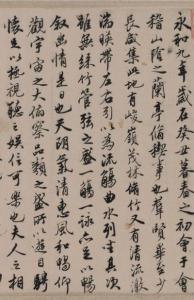 永和九年歲在癸丑暮春之初會于會
稽山陰之蘭亭脩禊事也羣賢畢至少
長咸集此地有峻嶺茂林脩竹又有清流激
湍暎帶左右引以為流觴曲水列坐其次
雖無絲竹管弦之盛一觴一詠亦足以暢
叙幽情是日也天朗氣清惠風和暢仰
觀宇宙之大俯察品類之盛所以遊目騁
懷足以極視聽之娛信可樂也夫人之相